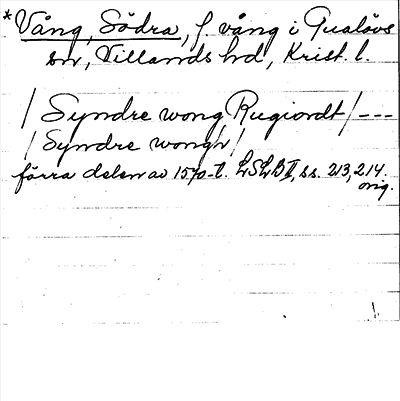 *Vång, Södra, f. vång i Gualövs
sn, Villands hd, Krist. l.
/ Syndre wong Rugiordt / ---
/ Syndre wongh /
förra delen av 1570-t. LSLB II, ss. 213, 214.
orig.